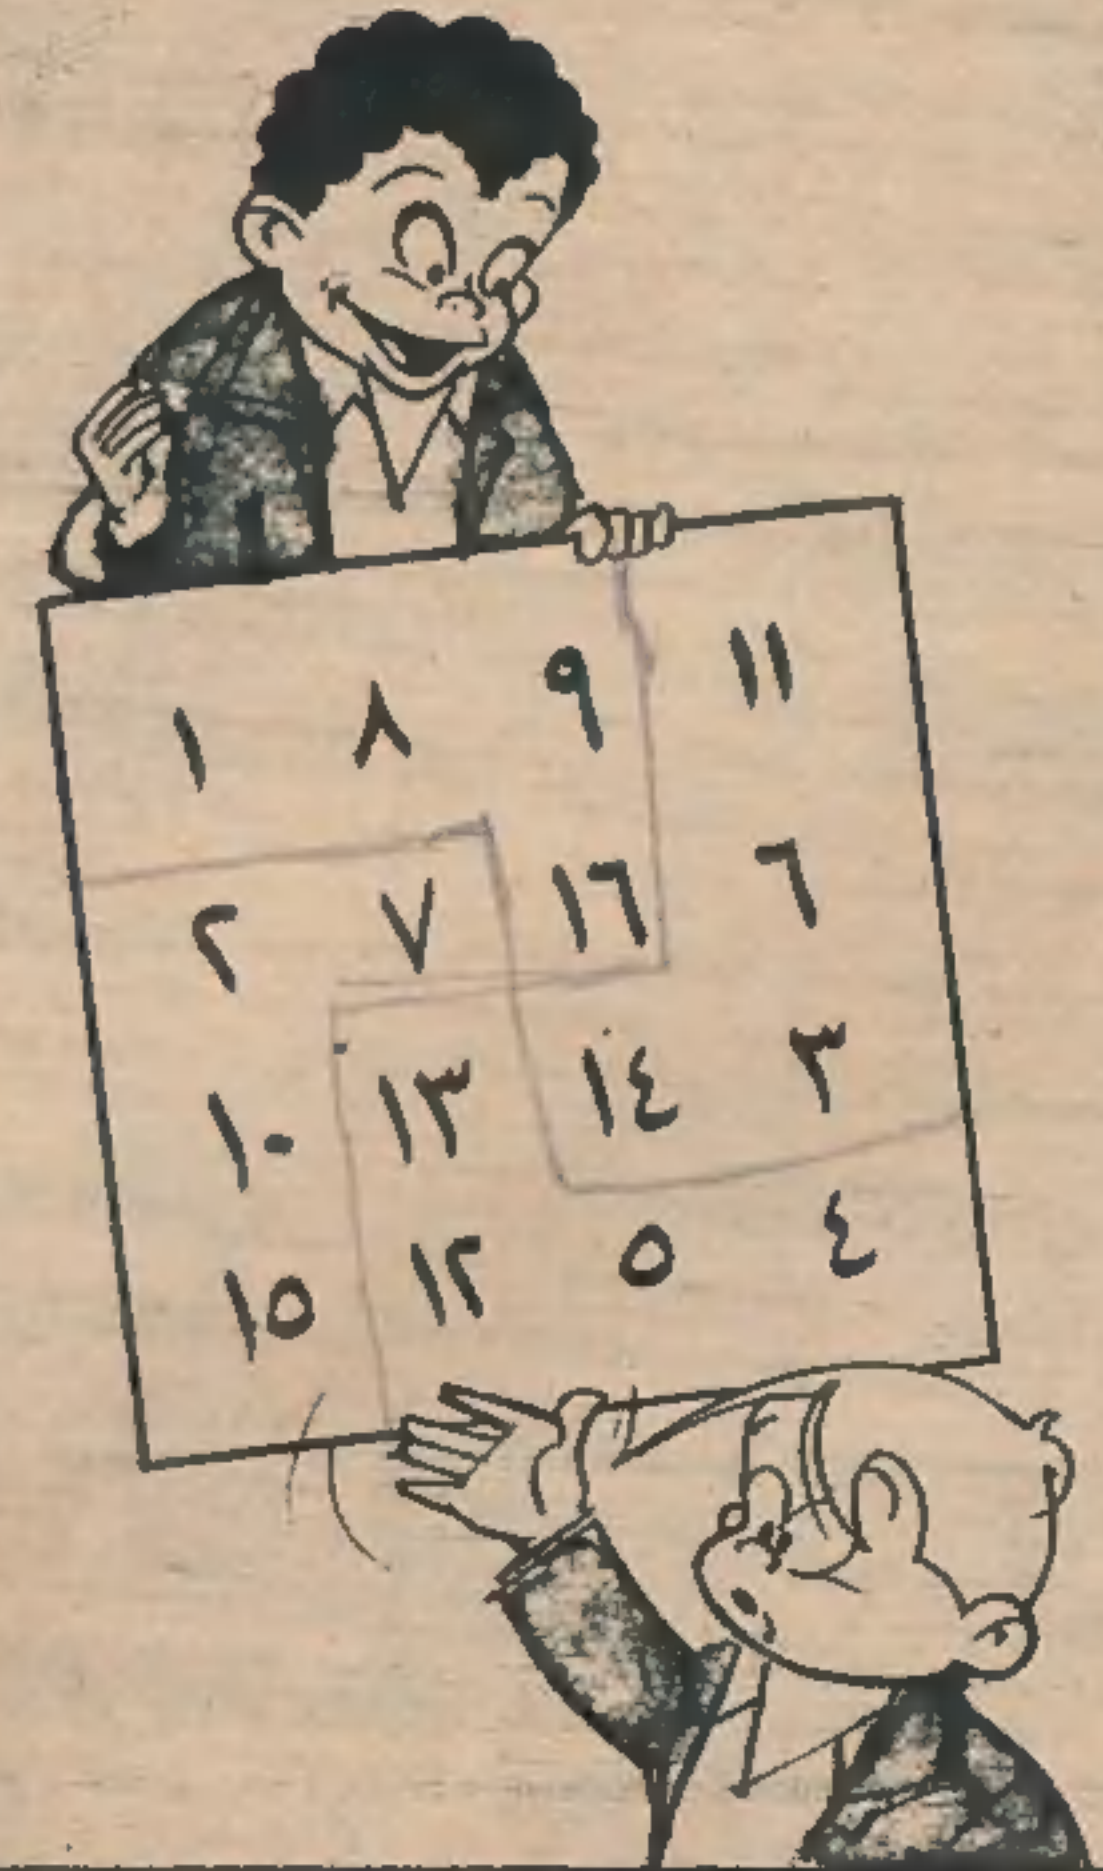 ١ ٨ ٩ ١١
٢ ٧ ١٦ ٦
١٠ ١٣ ١٤ ٣
١٥ ١٢ ٥ ٤